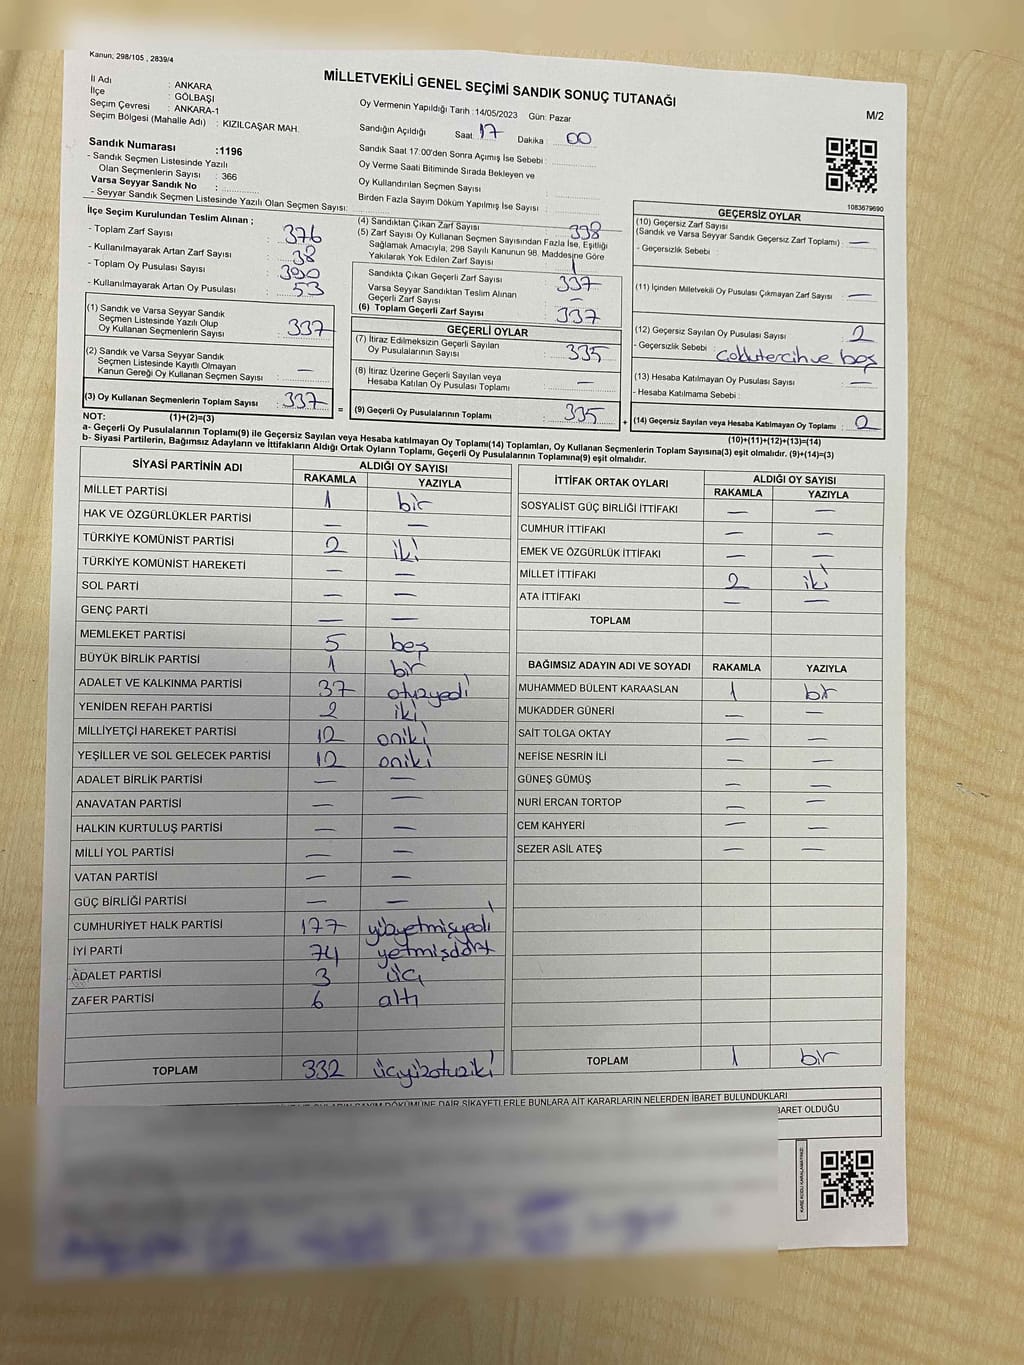 Kanun, 298/105 , 2839/4
MİLLETVEKİLİ GENEL SEÇİMİ SANDIK SONUÇ TUTANAĞI
M/2
İl Adı : ANKARA
İlçe : GÖLBAŞI
Seçim Çevresi : ANKARA-1
Seçim Bölgesi (Mahalle Adı) : KIZILCAŞAR MAH.
Sandık Numarası :1196
- Sandık Seçmen Listesinde Yazılı
Olan Seçmenlerin Sayısı : 366
Varsa Seyyar Sandık No :
- Seyyar Sandık Seçmen Listesinde Yazılı Olan Seçmen Sayısı:
Oy Vermenin Yapıldığı Tarih :14/05/2023 Gün: Pazar
Sandığın Açıldığı Saat: 17 Dakika : 00
Sandık Saat 17:00'den Sonra Açımış İse Sebebi :
Oy Verme Saati Bitiminde Sırada Bekleyen ve
Oy Kullandırılan Seçmen Sayısı :
Birden Fazla Sayım Döküm Yapılmış İse Sayısı :
1083679690
İlçe Seçim Kurulundan Teslim Alınan ;
- Toplam Zarf Sayısı : 376
- Kullanılmayarak Artan Zarf Sayısı : 38
- Toplam Oy Pusulası Sayısı : 390
- Kullanılmayarak Artan Oy Pusulası : 53
(1) Sandık ve Varsa Seyyar Sandık
Seçmen Listesinde Yazılı Olup
Oy Kullanan Seçmenlerin Sayısı : 337
(2) Sandık ve Varsa Seyyar Sandık
Seçmen Listesinde Kayıtlı Olmayan
Kanun Gereği Oy Kullanan Seçmen Sayısı : —
(3) Oy Kullanan Seçmenlerin Toplam Sayısı : 337
(4) Sandıktan Çıkan Zarf Sayısı : 338
(5) Zarf Sayısı Oy Kullanan Seçmen Sayısından Fazla İse, Eşitliği
Sağlamak Amacıyla, 298 Sayılı Kanunun 98. Maddesine Göre
Yakılarak Yok Edilen Zarf Sayısı : 1
Sandıkta Çıkan Geçerli Zarf Sayısı : 337
Varsa Seyyar Sandıktan Teslim Alınan
Geçerli Zarf Sayısı : —
(6) Toplam Geçerli Zarf Sayısı : 337
GEÇERLİ OYLAR
(7) İtiraz Edilmeksizin Geçerli Sayılan
Oy Pusulalarının Sayısı : 335
(8) İtiraz Üzerine Geçerli Sayılan veya
Hesaba Katılan Oy Pusulası Toplamı : —
= (9) Geçerli Oy Pusulalarının Toplamı : 335
GEÇERSİZ OYLAR
(10) Geçersiz Zarf Sayısı
(Sandık ve Varsa Seyyar Sandık Geçersiz Zarf Toplamı) : —
- Geçersizlik Sebebi
(11) İçinden Milletvekili Oy Pusulası Çıkmayan Zarf Sayısı : —
(12) Geçersiz Sayılan Oy Pusulası Sayısı : 2
- Geçersizlik Sebebi : coklutercih ve boş
(13) Hesaba Katılmayan Oy Pusulası Sayısı : —
- Hesaba Katılmama Sebebi :
+ (14) Geçersiz Sayılan veya Hesaba Katılmayan Oy Toplamı : 2
NOT: (1)+(2)=(3)
(10)+(11)+(12)+(13)=(14)
a- Geçerli Oy Pusulalarının Toplamı(9) ile Geçersiz Sayılan veya Hesaba katılmayan Oy Toplamı(14) Toplamları, Oy Kullanan Seçmenlerin Toplam Sayısına(3) eşit olmalıdır. (9)+(14)=(3)
b- Siyasi Partilerin, Bağımsız Adayların ve İttifakların Aldığı Ortak Oyların Toplamı, Geçerli Oy Pusulalarının Toplamına(9) eşit olmalıdır.
SİYASİ PARTİNİN ADI ALDIĞI OY SAYISI
RAKAMLA YAZIYLA
MİLLET PARTİSİ 1 bir
HAK VE ÖZGÜRLÜKLER PARTİSİ — —
TÜRKİYE KOMÜNİST PARTİSİ 2 iki
TÜRKİYE KOMÜNİST HAREKETİ — —
SOL PARTİ — —
GENÇ PARTİ — —
MEMLEKET PARTİSİ 5 beş
BÜYÜK BİRLİK PARTİSİ 1 bir
ADALET VE KALKINMA PARTİSİ 37 otuzyedi
YENİDEN REFAH PARTİSİ 2 iki
MİLLİYETÇİ HAREKET PARTİSİ 12 oniki
YEŞİLLER VE SOL GELECEK PARTİSİ 12 oniki
ADALET BİRLİK PARTİSİ — —
ANAVATAN PARTİSİ — —
HALKIN KURTULUŞ PARTİSİ — —
MİLLİ YOL PARTİSİ — —
VATAN PARTİSİ — —
GÜÇ BİRLİĞİ PARTİSİ — —
CUMHURİYET HALK PARTİSİ 177 yüzyetmişyedi
İYİ PARTİ 74 yetmişdört
ADALET PARTİSİ 3 üç
ZAFER PARTİSİ 6 altı
TOPLAM 332 üçyüzotuziki
İTTİFAK ORTAK OYLARI ALDIĞI OY SAYISI
RAKAMLA YAZIYLA
SOSYALİST GÜÇ BİRLİĞİ İTTİFAKI — —
CUMHUR İTTİFAKI — —
EMEK VE ÖZGÜRLÜK İTTİFAKI — —
MİLLET İTTİFAKI 2 iki
ATA İTTİFAKI — —
TOPLAM
BAĞIMSIZ ADAYIN ADI VE SOYADI RAKAMLA YAZIYLA
MUHAMMED BÜLENT KARAASLAN 1 bir
MUKADDER GÜNERİ — —
SAİT TOLGA OKTAY — —
NEFİSE NESRİN İLİ — —
GÜNEŞ GÜMÜŞ — —
NURİ ERCAN TORTOP — —
CEM KAHYERİ — —
SEZER ASİL ATEŞ — —
TOPLAM 1 bir
SAYIM DÖKÜMÜNE DAİR ŞİKAYETLERLE BUNLARA AİT KARARLARIN NELERDEN İBARET BULUNDUKLARI
İBARET OLDUĞU
KARE KODU KARALAMAYINIZ!